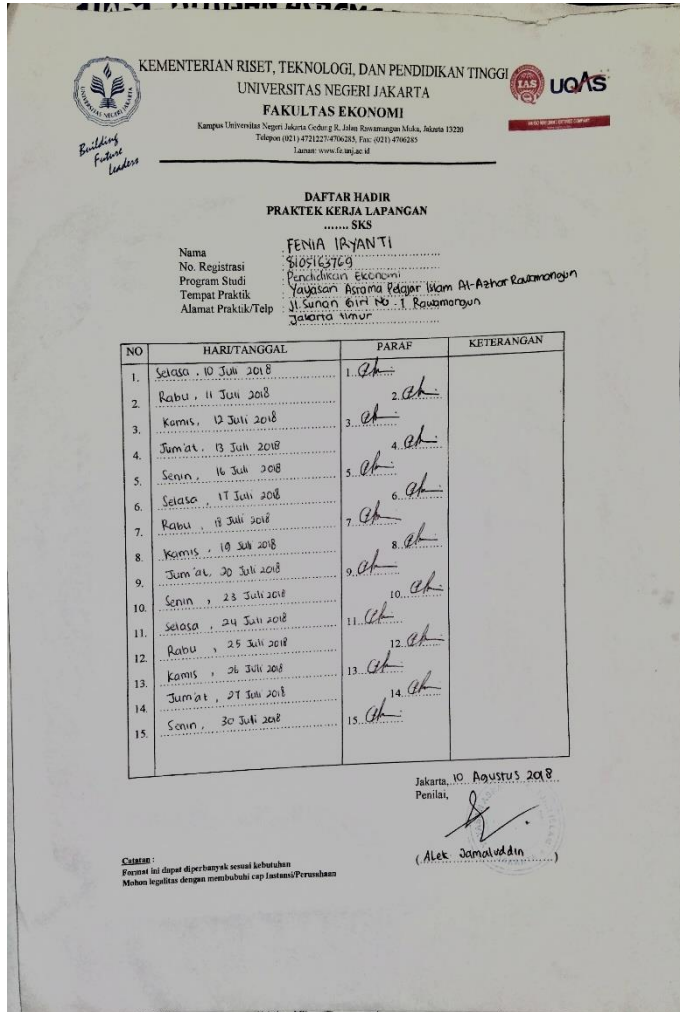 KEMENTERIAN RISET, TEKNOLOGI, DAN PENDIDIKAN TINGGI
UNIVERSITAS NEGERI JAKARTA
FAKULTAS EKONOMI
Kampus Universitas Negeri Jakarta Gedung R, Jalan Rawamangun Muka, Jakarta 13220
Telepon (021) 4721227/4706285, Fax: (021) 4706285
Laman: www.fe.unj.ac.id
UNIVERSITAS NEGERI JAKARTA
Building
Future
Leaders
IAS
UQAS
DAFTAR HADIR
PRAKTEK KERJA LAPANGAN
....... SKS
Nama : FENIA IRYANTI
No. Registrasi : 8105163769
Program Studi : Pendidikan Ekonomi
Tempat Praktik : Yayasan Asrama Pelajar Islam Al-Azhar Rawamangun
Alamat Praktik/Telp : Jl. Sunan Giri No. 1 Rawamangun
Jakarta timur
NO HARI/TANGGAL PARAF KETERANGAN
1. Selasa, 10 Juli 2018 1.
2. Rabu, 11 Juli 2018 2.
3. Kamis, 12 Juli 2018 3.
4. Jum'at, 13 Juli 2018 4.
5. Senin, 16 Juli 2018 5.
6. Selasa, 17 Juli 2018 6.
7. Rabu, 18 Juli 2018 7.
8. Kamis, 19 Juli 2018 8.
9. Jum'at, 20 Juli 2018 9.
10. Senin, 23 Juli 2018 10.
11. Selasa, 24 Juli 2018 11.
12. Rabu, 25 Juli 2018 12.
13. Kamis, 26 Juli 2018 13.
14. Jum'at, 27 Juli 2018 14.
15. Senin, 30 Juli 2018 15.
Jakarta, 10 Agustus 2018
Penilai,
(Alek Jamaluddin)
Catatan :
Format ini dapat diperbanyak sesuai kebutuhan
Mohon legalitas dengan membubuhi cap Instansi/Perusahaan